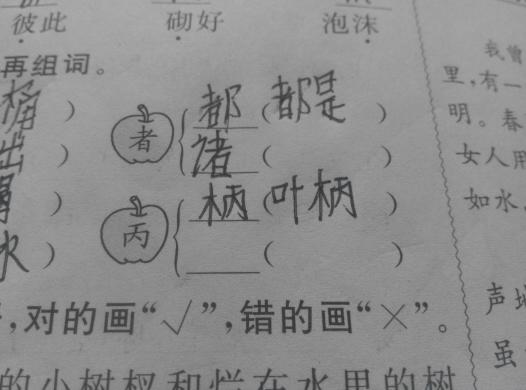 彼此 砌好 泡沫
再组词。
桶）
者 都（都是 ）
出）
诸（ ）
丙 柄（叶柄 ）
水）
（ ）
，对的画“√”，错的画“×”。
的小树杈和烂在水里的树
我曾
里，有一
明。春
女人用
如水
声地
虽